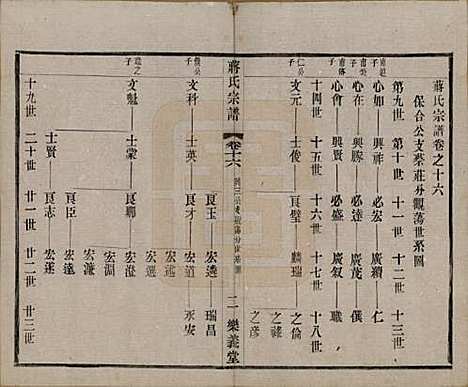 蔣氏宗譜卷之十六
保合公支蔡莊分觀蕩世系圖
第九世 第十世 十一世 十二世 十三世
心如 興祥 必宏 廣纘 仁
心在 興勝 必達 廣茂 僕
心會 興賢 必盛 廣叙 職
十四世 十五世 十六世 十七世 十八世
仁公子
文元 士俊 良璧 麟瑞 之倫
之祿
之彥
蔣氏宗譜
卷十六
二 樂義堂
僕公子
文科 士英 良玉 宏遴 瑞昌
良才 宏道 永安
宏遜
宏運
職之子
文魁 士蒙 良卿 宏澄
宏淵
宏濂
士賢 良臣 宏遠
良志 宏遂
十九世 二十世 廿一世 廿二世 廿三世